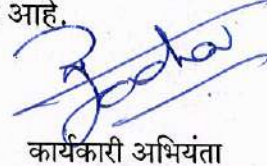 आहे.
कार्यकारी अभियंता